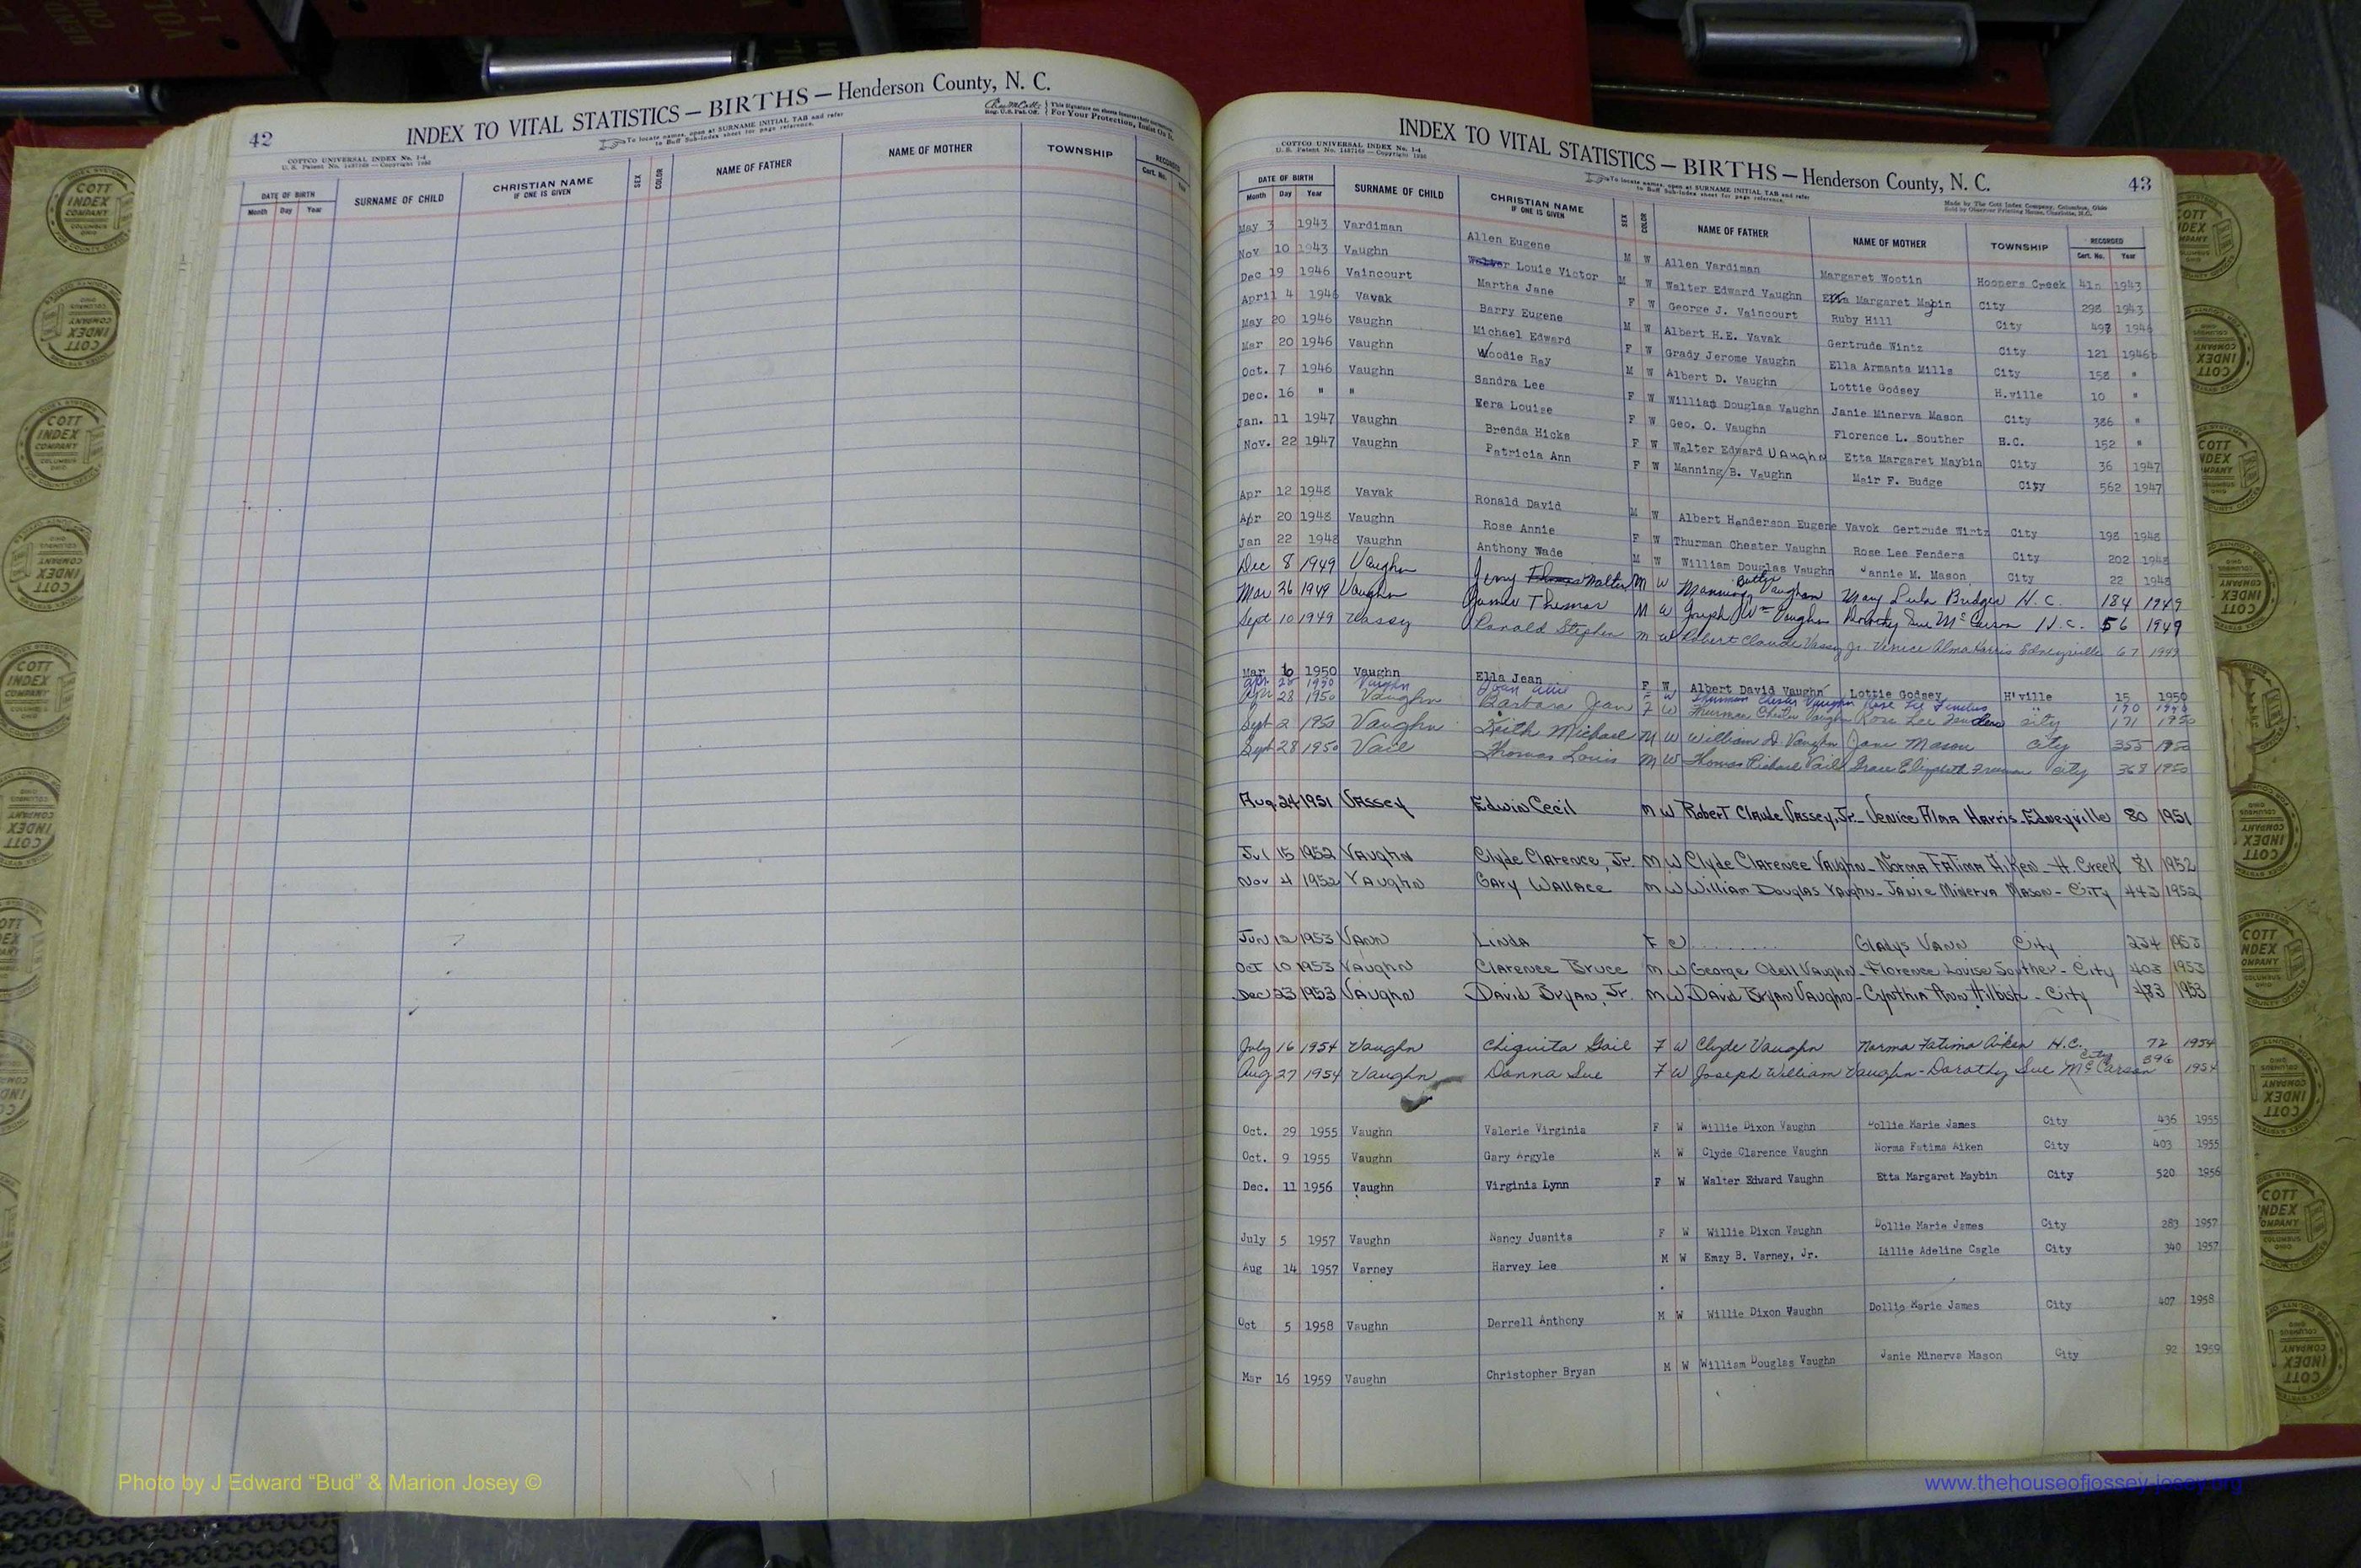 42
INDEX TO VITAL STATISTICS — BIRTHS — Henderson County, N. C.
COTTCO UNIVERSAL INDEX No. 1-4
To locate names, open at SURNAME INITIAL TAB and refer
to Buff Sub-Index sheet for page reference.
This Signature on sheets
For Your Protection, Insist On It.
DATE OF BIRTH
Month Day Year
SURNAME OF CHILD
CHRISTIAN NAME
IF ONE IS GIVEN
SEX
COLOR
NAME OF FATHER
NAME OF MOTHER
TOWNSHIP
RECORDED
Cert. No.
INDEX TO VITAL STATISTICS — BIRTHS — Henderson County, N. C.
43
COTTCO UNIVERSAL INDEX No. 1-4
To locate names, open at SURNAME INITIAL TAB and refer
to Buff Sub-Index sheet for page reference.
Made by The Cott Index Company, Columbus, Ohio
Sold by Observer Printing House, Charlotte, N.C.
DATE OF BIRTH
Month Day Year
SURNAME OF CHILD
CHRISTIAN NAME
IF ONE IS GIVEN
SEX
COLOR
NAME OF FATHER
NAME OF MOTHER
TOWNSHIP
RECORDED
Cert. No. Year
May 3 1943 Vardiman Allen Eugene M W Allen Vardiman Margaret Wootin Hoopers Creek 41n 1943
Nov 10 1943 Vaughn Walter Louie Victor M W Walter Edward Vaughn Etta Margaret Mabin City 298 1943
Dec 19 1946 Vaincourt Martha Jane F W George J. Vaincourt Ruby Hill City 497 1946
April 4 1946 Vavak Barry Eugene M W Albert H.E. Vavak Gertrude Wintz City 121 1946
May 20 1946 Vaughn Michael Edward F W Grady Jerome Vaughn Ella Armanta Mills City 158 "
Mar 20 1946 Vaughn Woodie Ray M W Albert D. Vaughn Lottie Godsey H.ville 10 "
Oct. 7 1946 Vaughn Sandra Lee F W William Douglas Vaughn Janie Minerva Mason City 386 "
Dec. 16 " " Vera Louise F W Geo. O. Vaughn Florence L. Souther H.C. 152 "
Jan. 11 1947 Vaughn Brenda Hicks F W Walter Edward Vaughn Etta Margaret Maybin City 36 1947
Nov. 22 1947 Vaughn Patricia Ann F W Manning B. Vaughn Mair F. Budge City 562 1947
Apr 12 1948 Vavak Ronald David M W Albert Henderson Eugene Vavok Gertrude Wintz City 198 1948
Apr 20 1948 Vaughn Rose Annie F W Thurman Chester Vaughn Rose Lee Fenders City 202 1948
Jan 22 1948 Vaughn Anthony Wade M W William Douglas Vaughn Jannie M. Mason City 22 1948
Dec 8 1949 Vaughn Jerry Thomas Walter M W Manning Butler Vaughan Mary Lula Bridges H.C. 184 1949
Mar 26 1949 Vaughn James Thomas M W Joseph Wm Vaughn Dorothy Sue McCarson H.C. 56 1949
Sept 10 1949 Vassey Ronald Stephen M W Robert Claude Vassey Jr. Venice Alma Harris Edneyville 67 1949
Mar 6 1950 Vaughn Ella Jean F W Albert David Vaughn Lottie Godsey H'ville 15 1950
Apr. 28 1950 Vaughn Joan Allie F W Thurman Chester Vaughn Rose Lee Fenders " 170 1950
Apr 28 1950 Vaughn Barbara Jean F W Thurman Chester Vaughn Rose Lee Fenders City 171 1950
Sept 2 1950 Vaughn Keith Michael M W William D. Vaughn Jane Mason City 355 1950
Sept 28 1950 Vail Thomas Louis M W Thomas Richard Vail Grace Elizabeth Freeman City 368 1950
Aug 24 1951 Vassey Edwin Cecil M W Robert Claude Vassey, Jr. - Venice Alma Harris - Edneyville 80 1951
Jul 15 1952 Vaughn Clyde Clarence, Jr. M W Clyde Clarence Vaughn - Norma Fatima Aiken - H. Creek 81 1952
Nov 4 1952 Vaughn Gary Wallace M W William Douglas Vaughn - Janie Minerva Mason - City 443 1952
Jun 12 1953 Vann Linda F C ......... Gladys Vann City 234 1953
Oct 10 1953 Vaughn Clarence Bruce M W George Odell Vaughn - Florence Louise Souther - City 403 1953
Dec 23 1953 Vaughn David Bryan, Jr. M W David Bryan Vaughn - Cynthia Ann Hilbish - City 483 1953
July 16 1954 Vaughn Chiquita Gail F W Clyde Vaughn Norma Fatima Aiken H.C. 72 1954
Aug 27 1954 Vaughn Donna Sue F W Joseph William Vaughn - Dorothy Sue McCarson City 396 1954
Oct. 29 1955 Vaughn Valerie Virginia F W Willie Dixon Vaughn Dollie Marie James City 436 1955
Oct. 9 1955 Vaughn Gary Argyle M W Clyde Clarence Vaughn Norma Fatima Aiken City 403 1955
Dec. 11 1956 Vaughn Virginia Lynn F W Walter Edward Vaughn Etta Margaret Maybin City 520 1956
July 5 1957 Vaughn Nancy Juanita F W Willie Dixon Vaughn Dollie Marie James City 283 1957
Aug 14 1957 Varney Harvey Lee M W Emzy B. Varney, Jr. Lillie Adeline Cagle City 340 1957
Oct 5 1958 Vaughn Derrell Anthony M W Willie Dixon Vaughn Dollie Marie James City 407 1958
Mar 16 1959 Vaughn Christopher Bryan M W William Douglas Vaughn Janie Minerva Mason City 92 1959
Photo by J Edward “Bud” & Marion Josey ©
www.thehouseofjossey-josey.org